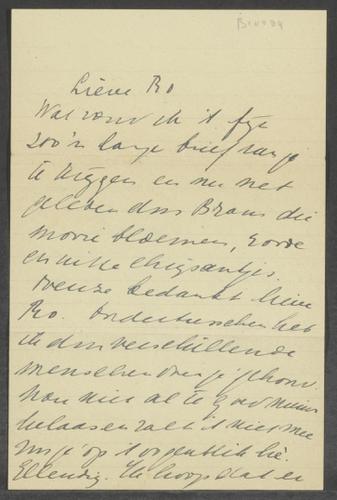 Lieve Ro
Wat vond ik 't fijn
zoo'n lange brief van je
te krijgen en nu net
geleden dus Bram die
mooie bloemen, roode
en witte chrysantjes.
bedankt lieve
Ro. Ondertusschen heb
ik dus verschillende
menschen over je gehoord.
niet al te goed nieuws
helaas en zal 't niet mee
op 't oogenblik
Ellendig. Ik hoop dat er